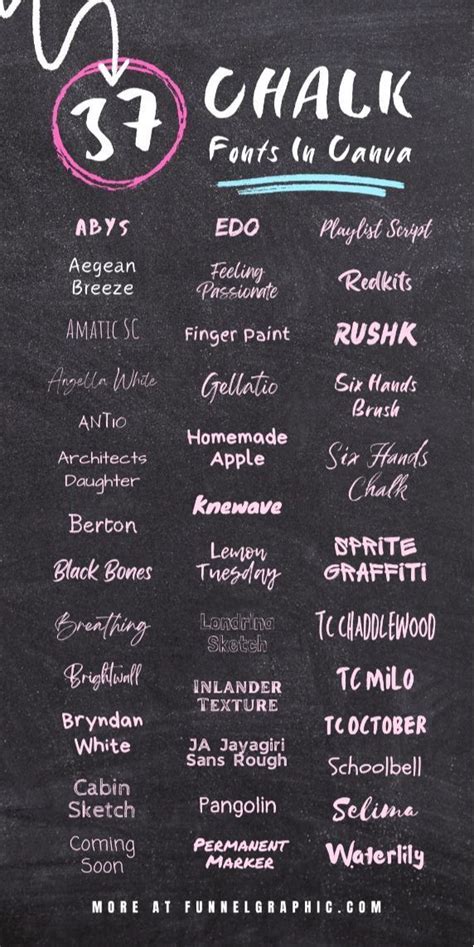 37
CHALK
Fonts In Canva
ABYS
Aegean
Breeze
AMATIC SC
Angella White
ANTIO
Architects
Daughter
Berton
Black Bones
Breathing
Brightwall
Bryndan
White
Cabin
Sketch
Coming
Soon
EDO
Feeling
Passionate
Finger Paint
Gellatio
Homemade
Apple
Knewave
Lemon
Tuesday
Londrina
Sketch
INLANDER
TEXTURE
JA Jayagiri
Sans Rough
Pangolin
PERMANENT
MARKER
Playlist Script
Redkits
RUSHK
Six Hands
Brush
Six Hands
Chalk
SPRITE
GRAFFITI
TC CHADDLEWOOD
TC MILO
TC OCTOBER
Schoolbell
Selima
Waterlily
MORE AT FUNNELGRAPHIC.COM